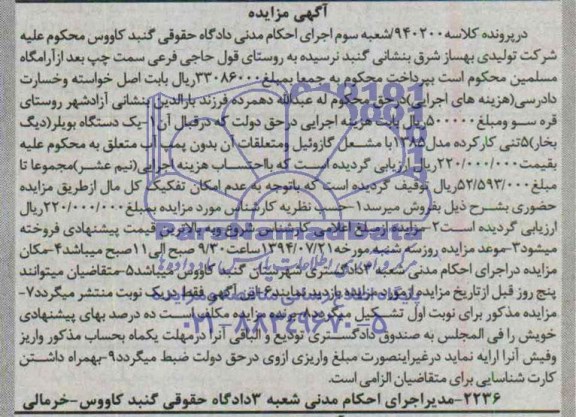 آگهی مزایده
درپرونده کلاسه۹۴۰۲۰۰/شعبه سوم اجرای احکام مدنی دادگاه حقوقی گنبد کاووس محکوم علیه
شرکت تولیدی بهساز شرق بنشانی گنبد نرسیده به روستای قول حاجی فرعی سمت چپ بعد ازآرامگاه
مسلمین محکوم است بپرداخت محکوم به جمعا بمبلغ۳۳۰۸۶۰۰۰ریال بابت اصل خواسته وخسارت
دادرسی(هزینه های اجرایی)درحق محکوم له عبدالله دهمرده فرزند یارالدین بنشانی آزادشهر روستای
قره سو ومبلغ۵۰۰۰۰۰ریال بابت هزینه اجرایی درحق دولت که درقبال آن۱-یک دستگاه بویلر(دیگ
بخار)۵تنی کارکرده مدل۱۳۸۵با مشعل گازوئیل ومتعلقات آن بدون پمپ آب متعلق به محکوم علیه
بقیمت۲۲۰/۰۰۰/۰۰۰ریال ارزیابی گردیده است که بااحتساب هزینه اجرایی(نیم عشر)مجموعا تا
مبلغ۵۲/۵۹۳/۰۰۰ریال توقیف گردیده است که باتوجه به عدم امکان تفکیک کل مال ازطریق مزایده
حضوری بشرح ذیل بفروش میرسد۱-حسب نظریه کارشناس مورد مزایده بمبلغ۲۲۰/۰۰۰/۰۰۰ریال
ارزیابی گردیده است۲-مزایده ازمبلغ اعلامی کارشناس شروع وبه بالاترین قیمت پیشنهادی فروخته
میشود۳-موعد مزایده روزسه شنبه مورخه۱۳۹۴/۰۷/۲۱ساعت۹/۳۰صبح الی۱۱صبح میباشد۴-مکان
مزایده دراجرای احکام مدنی شعبه ۳دادگستری شهرستان گنبد کاووس میباشد۵-متقاضیان میتوانند
پنج روز قبل ازتاریخ مزایده ازمورد مزایده بازدید نمایند۶-این آگهی فقط دریک نوبت منتشر میگردد۷-
مزایده مذکور برای نوبت اول تشکیل میگردد۸-برنده مزایده مکلف است ده درصد بهای پیشنهادی
خویش را فی المجلس به صندوق دادگستری تودیع و الباقی آنرا درمهلت یکماه بحساب مذکور واریز
وفیش آنرا ارایه نماید درغیراینصورت مبلغ واریزی ازوی درحق دولت ضبط میگردد۹-بهمراه داشتن
کارت شناسایی برای متقاضیان الزامی است.
۲۲۳۶-مدیراجرای احکام مدنی شعبه ۳دادگاه حقوقی گنبد کاووس-خرمالی
ParsNamadData
۰۲۱-۸۸۳۴۹۶۷۰-۵